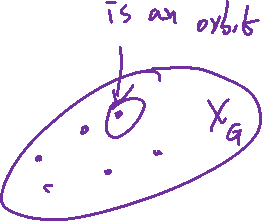 is an orbit
X_G